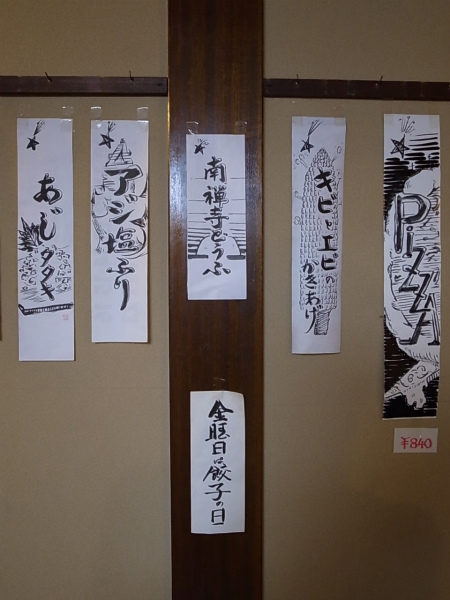 あじタタキ
アジ塩ふり
南禅寺どうふ
キビとエビの
かきあげ
PIZZA
¥840
金曜日は餃子の日